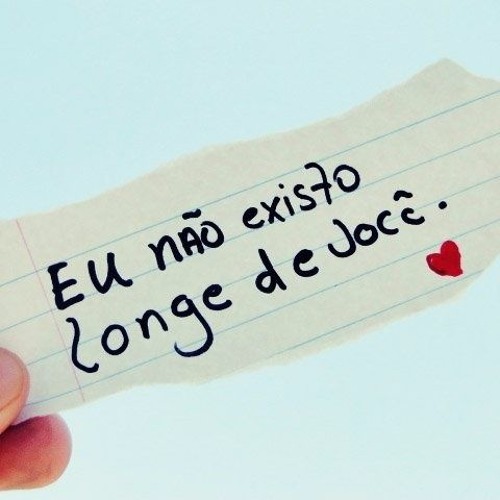 EU NÃO existo
longe de você.